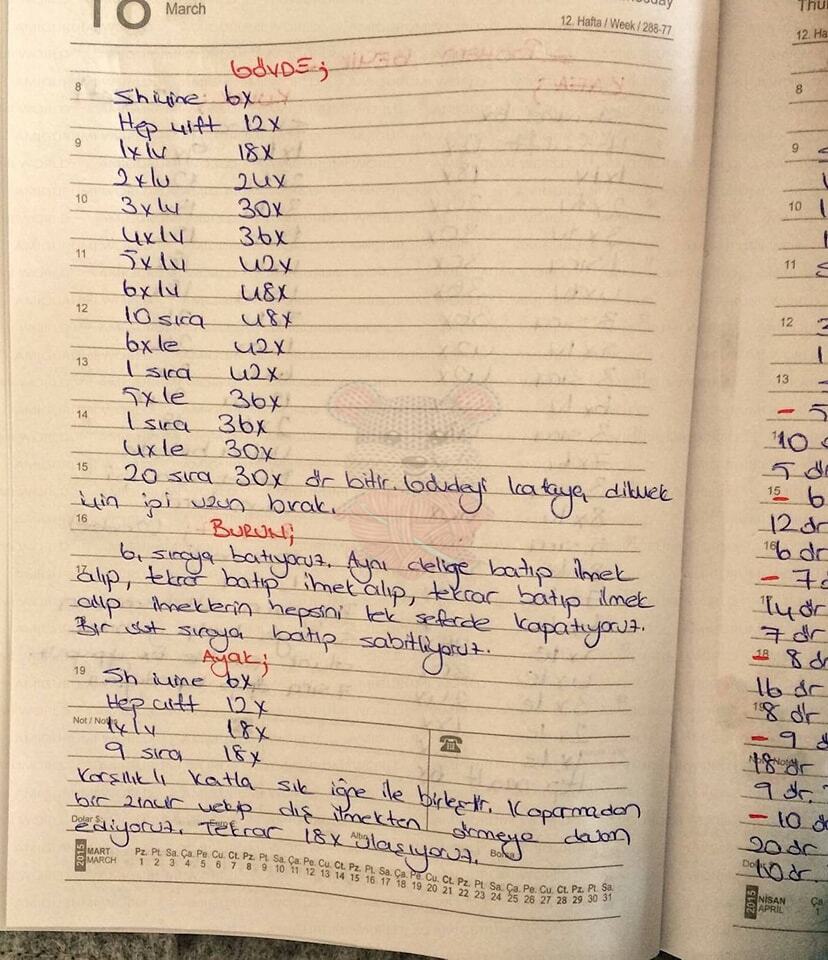 18 March
12. Hafta / Week / 288-77
GÖVDE;
8
Sh içine 6x
Hep çift 12x
9
1x1v 18x
2x1v 24x
10
3x1v 30x
4x1v 36x
11
5x1v 42x
6x1v 48x
12
10 sıra 48x
6x1e 42x
13
1 sıra 42x
5x1e 36x
14
1 sıra 36x
4x1e 30x
15
20 sıra 30x ör bitir. Gövdeyi kafaya dikmek
için ipi uzun bırak.
16
BURUN;
6. sıraya batıyoruz. Aynı deliğe batıp ilmek
17
alıp, tekrar batıp ilmek alıp, tekrar batıp ilmek
alıp ilmeklerin hepsini tek seferde kapatıyoruz.
Bir üst sıraya batıp sabitliyoruz.
Ayak;
19
Sh içine 6x
Hep çift 12x
Not / Notes
1x1v 18x
9 sıra 18x
Karşılıklı katla sık iğne ile birleştir. Koparmadan
bir zincir çekip dış ilmekten örmeye devam
ediyoruz. Tekrar 18x ulaşıyoruz.
2015 MART MARCH
Pz. Pt. Sa. Ça. Pe. Cu. Ct. Pz. Pt. Sa. Ça. Pe. Cu. Ct. Pz. Pt. Sa. Ça. Pe. Cu. Ct. Pz. Pt. Sa. Ça. Pe. Cu. Ct. Pz. Pt. Sa.
1 2 3 4 5 6 7 8 9 10 11 12 13 14 15 16 17 18 19 20 21 22 23 24 25 26 27 28 29 30 31
12. Ha
8
9
10
11
12
13
- 5
10
5 ör
15
- 6
12 ör
16
6 ör
- 7
14 ör
7 ör
18
- 8 ör
16 ör
8 ör
- 9
18 ör
9 ör.
- 10
20 ör
10 ör.
2015 NİSAN APRIL
Ça
1